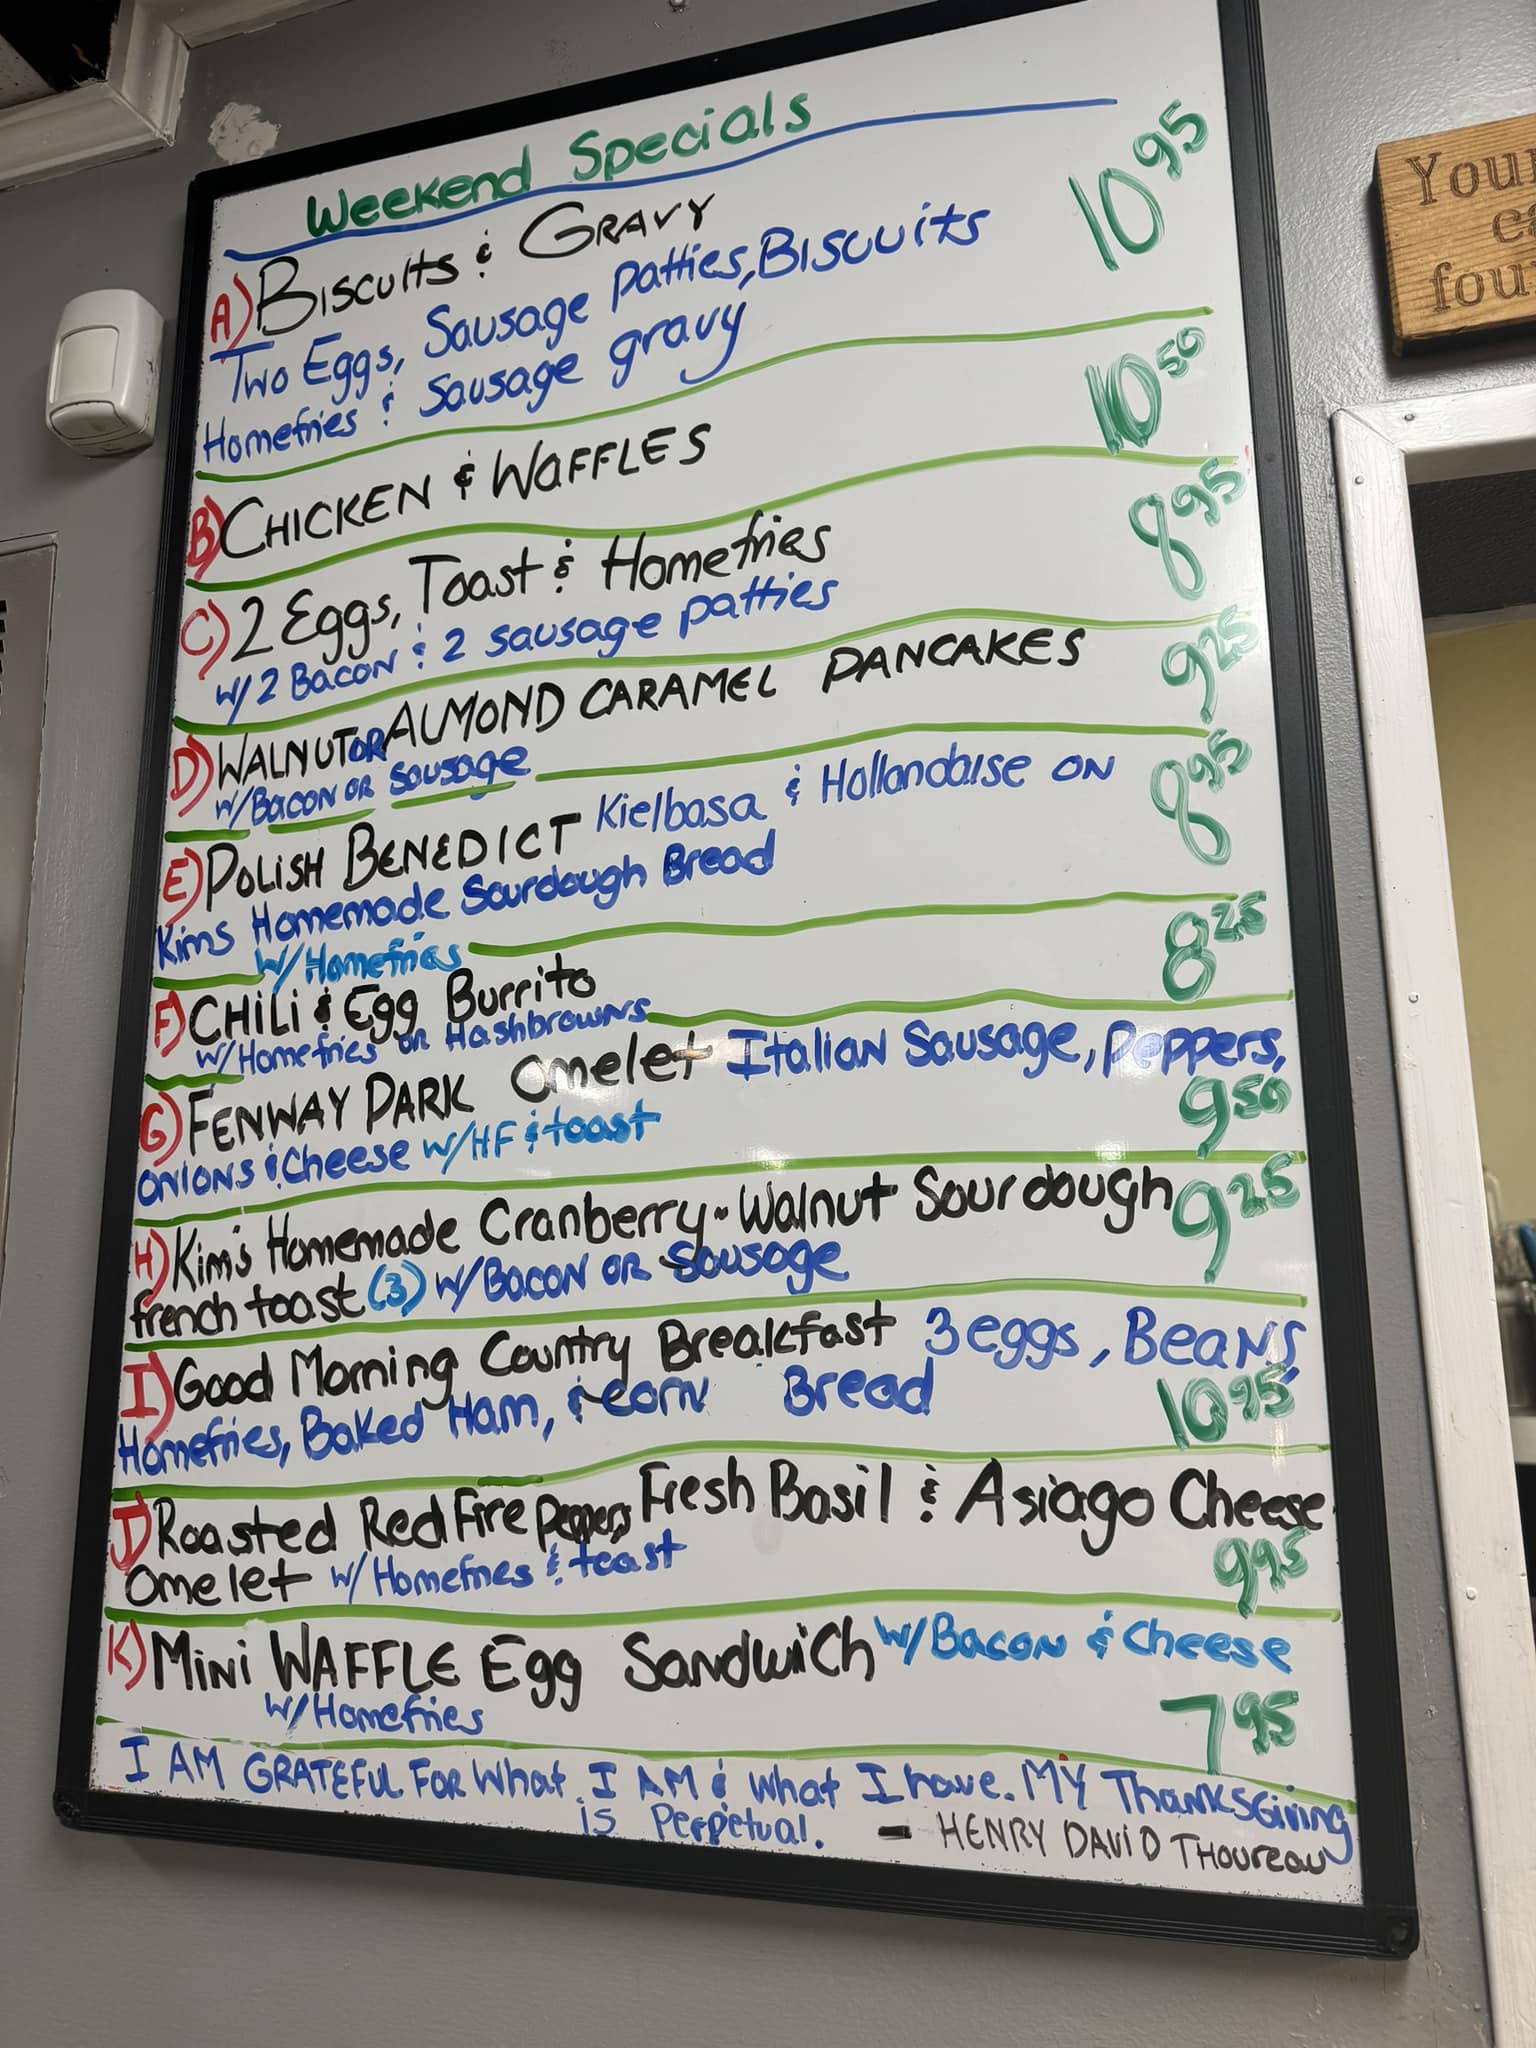 Weekend Specials
A) Biscuits & Gravy 10.95
Two Eggs, Sausage Patties, Biscuits
Homefries & Sausage gravy
B) CHICKEN & WAFFLES 10.50
C) 2 Eggs, Toast & Homefries 8.95
w/ 2 Bacon & 2 sausage patties
D) WALNUT OR ALMOND CARAMEL PANCAKES 9.25
w/ Bacon OR Sausage
E) POLISH BENEDICT Kielbasa & Hollandaise ON 8.95
Kims Homemade Sourdough Bread
w/ Homefries
F) CHILI & Egg Burrito 8.25
w/ Homefries or Hashbrowns
G) FENWAY PARK Omelet Italian Sausage, Peppers,
ONIONS & Cheese w/ HF & toast 9.50
H) Kim's Homemade Cranberry-Walnut Sourdough 9.25
french toast (3) w/ Bacon OR Sausage
I) Good Morning Country Breakfast 3 eggs, Beans,
Homefries, Baked Ham, & corn Bread 10.95
J) Roasted Red Fire Peppers, Fresh Basil & Asiago Cheese
Omelet w/ Homefries & toast 9.95
K) Mini WAFFLE Egg Sandwich w/ Bacon & Cheese
w/ Homefries 7.95
I AM GRATEFUL FOR What I AM & What I have. MY Thanksgiving
is Perpetual. - HENRY DAVID THOUREAU
Your
fou